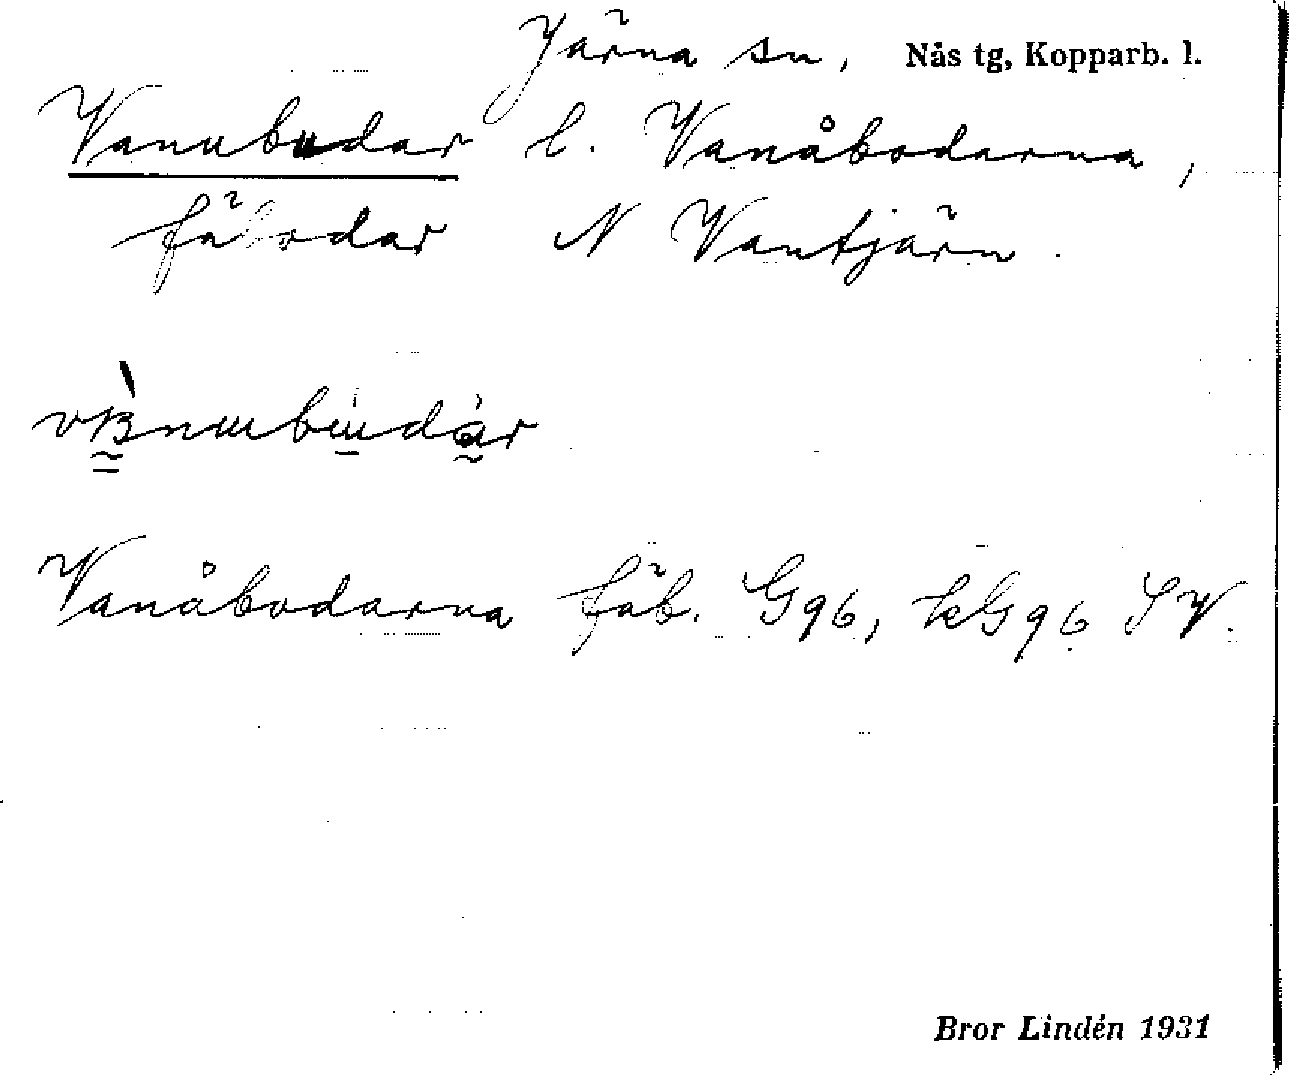 Järna sn, Nås tg, Kopparb. l.
Vanubudar l. Vanåbodarna,
fäbodar N Vantjärn.
Vanåbodarna fäb. G96, kG96 SV.
Bror Lindén 1931